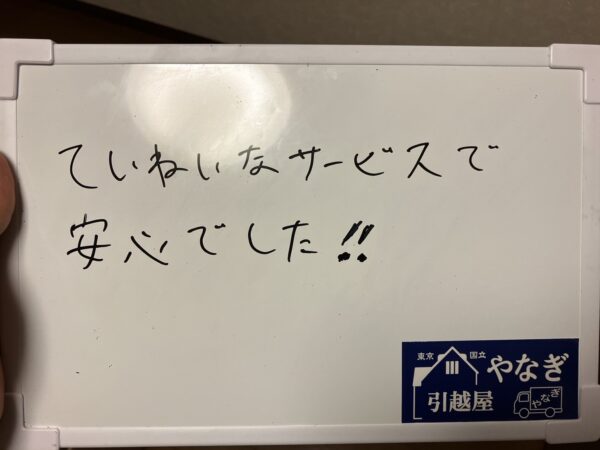 ていねいなサービスで
安心でした!!
東京 国立 やなぎ
引越屋 やなぎ